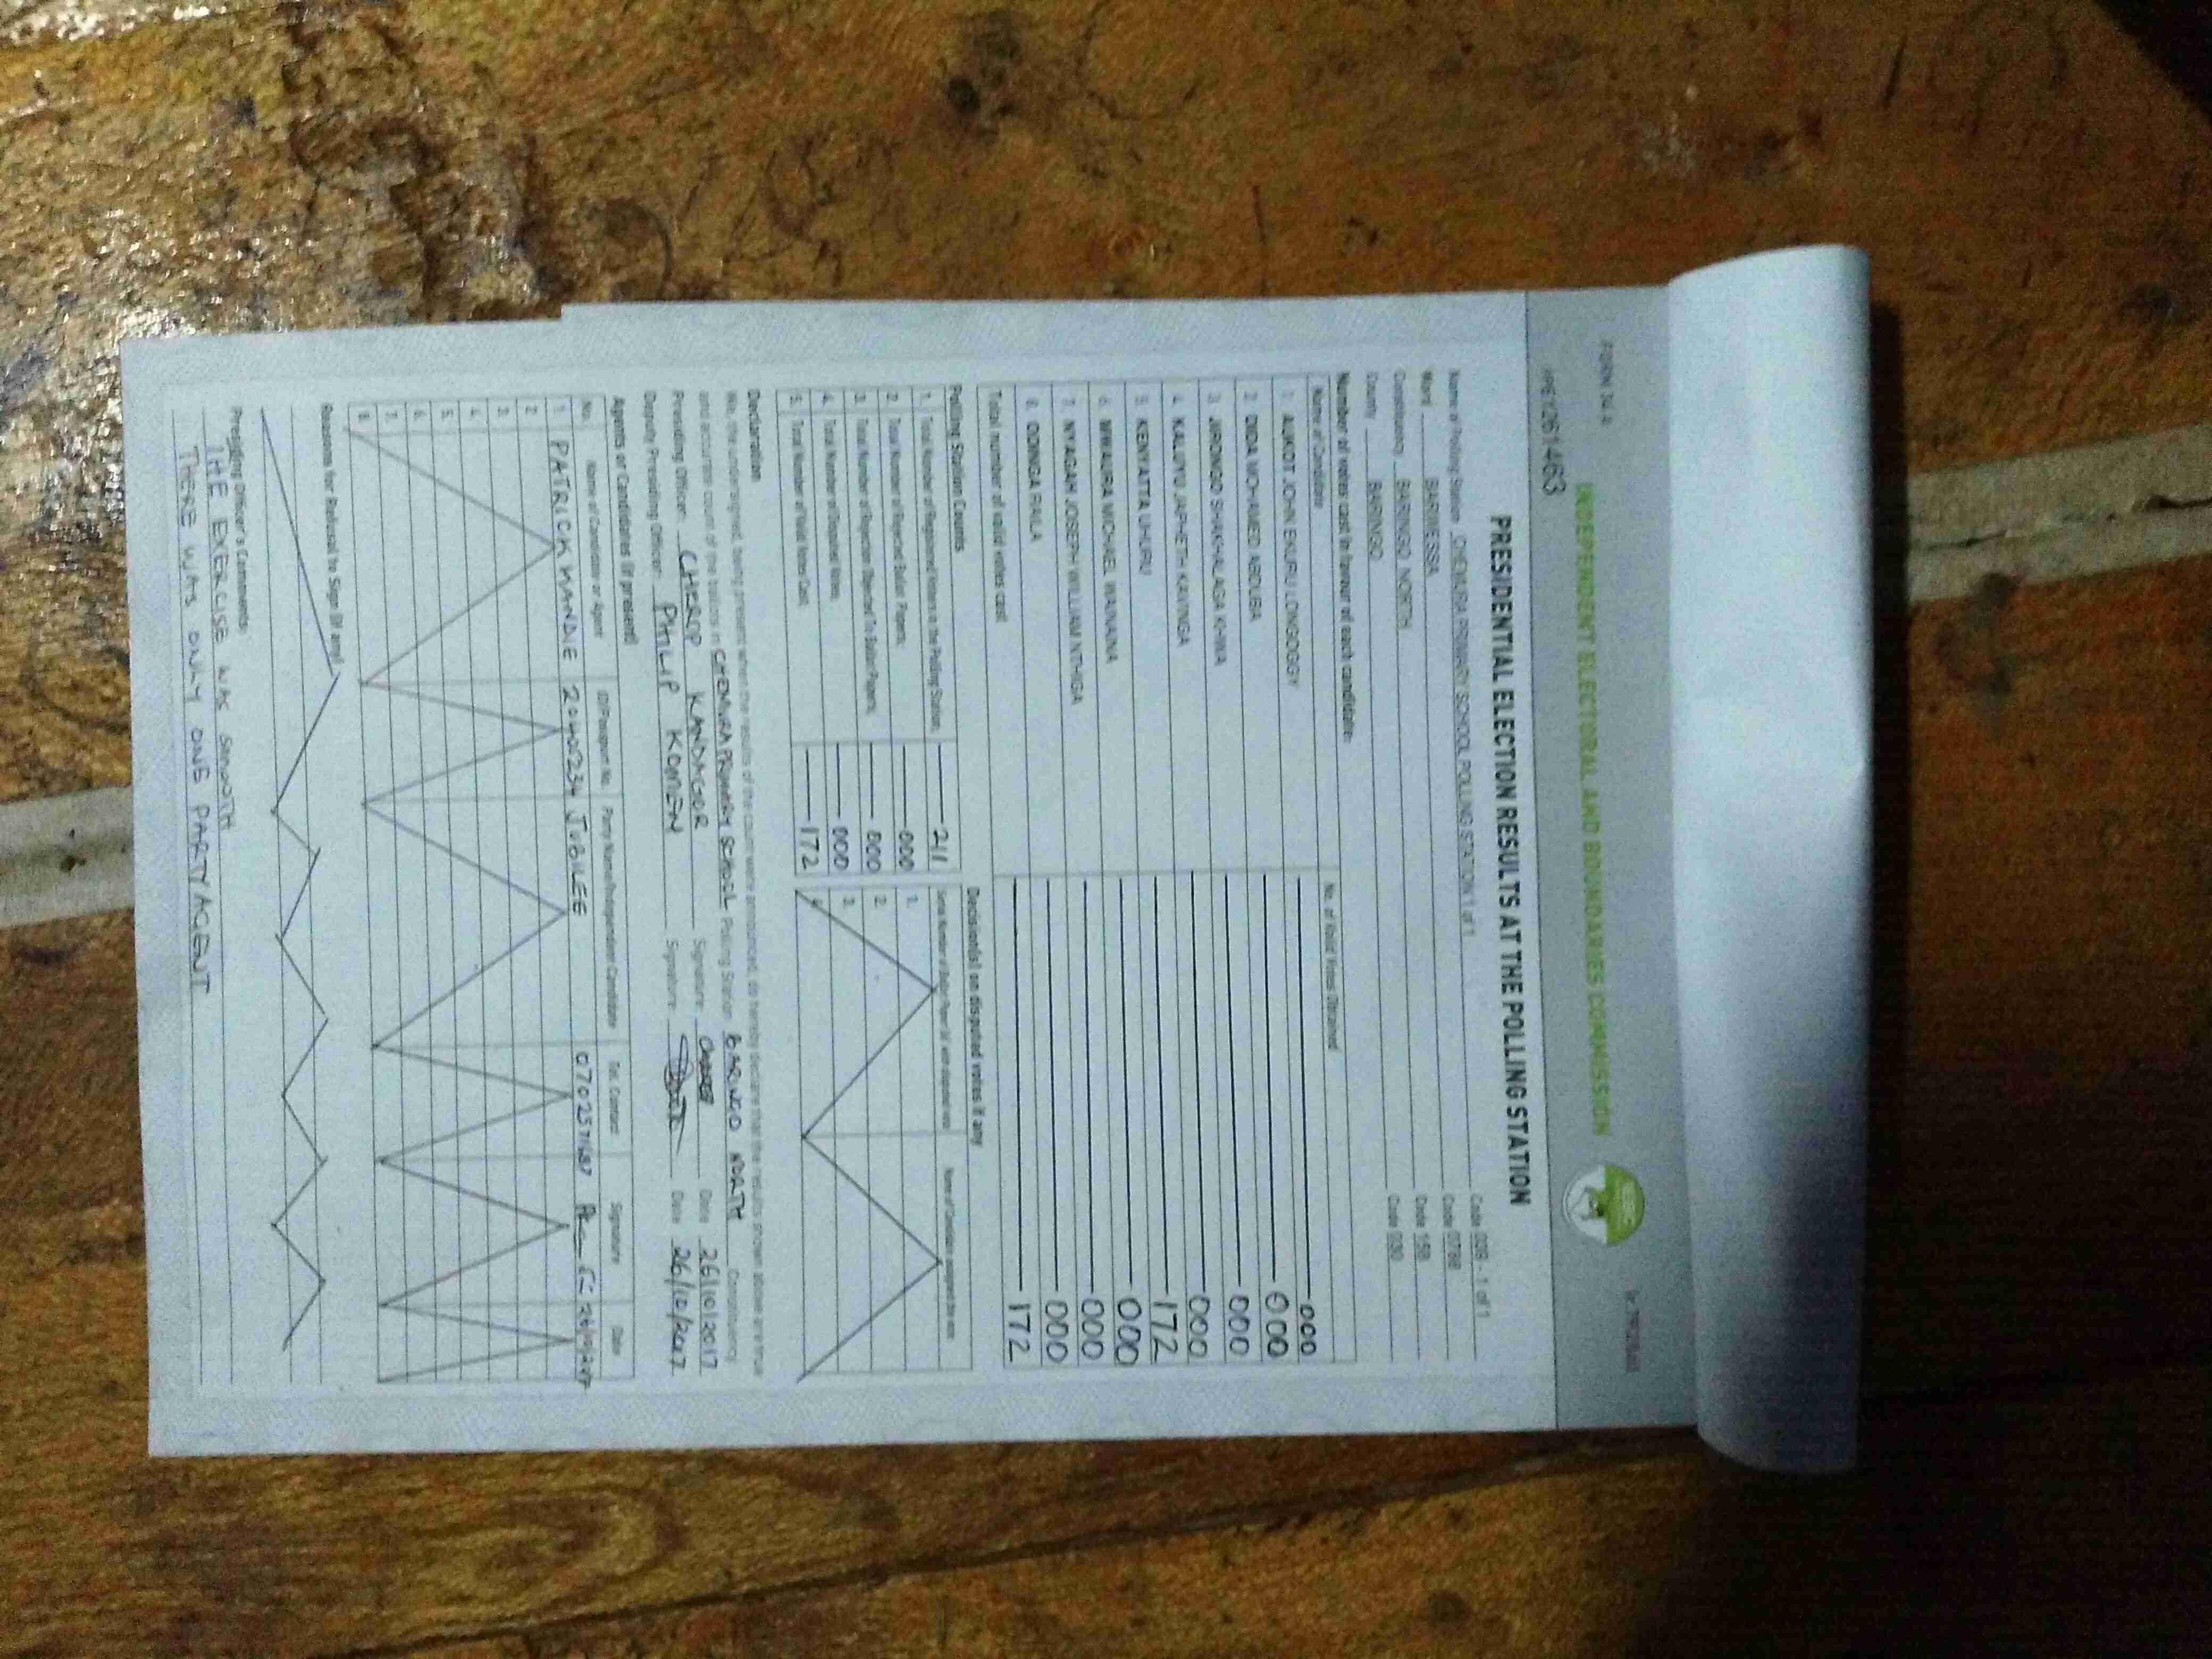 FORM 34 A
INDEPENDENT ELECTORAL AND BOUNDARIES COMMISSION
IEBC
PRESIDENTIAL ELECTION RESULTS AT THE POLLING STATION
Name of Polling Station CHEMURA PRIMARY SCHOOL POLLING STATION 1 of 1 Code 009 - 1 of 1
Ward BARWESSA Code 0788
Constituency BARINGO NORTH Code 158
County BARINGO Code 030
Number of votes cast in favour of each candidate:
Name of Candidate No. of Valid Votes Obtained
1. AUKOT JOHN EKURU LONGOGGY 000
2. DIDA MOHAMED ABDUBA 000
3. JIRONGO SHAKHALAGA KHWA 000
4. KALUYU JAPHETH KAVINGA 000
5. KENYATTA UHURU 172
6. MWAURA MICHAEL WAINAINA 000
7. NYAGAH JOSEPH WILLIAM NTHIGA 000
8. ODINGA RAILA 000
Total number of valid votes cast 172
Polling Station Counts
1. Total Number of Registered Voters in the Polling Station 211
2. Total Number of Rejected Ballot Papers 000
3. Total Number of Rejection Objected To Ballot Papers 000
4. Total Number of Disputed Votes 000
5. Total Number of Valid Votes Cast 172
Decision(s) on disputed votes if any
1.
2.
3.
4.
Declaration
We, the undersigned, being present when the results of the count were announced, do hereby declare that the results shown above are true
and accurate count of the ballots in CHEMURA PRIMARY SCHOOL Polling Station BARINGO NORTH Constituency
Presiding Officer: CHEROP KANDAGOR Signature: Date 26/10/2017
Deputy Presiding Officer: PHILIP KOMEN Signature: Date 26/10/2017
Agents or Candidates (if present)
No. Name of Candidate or Agent ID/Passport No. Party Name/Independent Candidate Tel. Contact Signature Date
1. PATRICK KANDIE JUBILEE
2.
3.
4.
5.
6.
7.
8.
Reasons for Refusal to Sign (if any)
Presiding Officer's Comments:
THE EXERCISE WAS SMOOTH
THERE WAS ONLY ONE PARTY AGENT